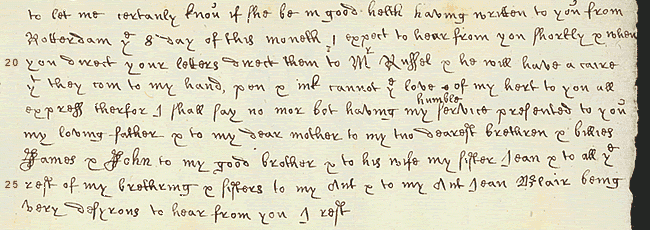 to let me certanly know if she be in good helth having written to you from
Rotterdam ye 8 day of this moneth I expect to hear from you shortly & when
20 you direct your letters direct them to Mr Russel & he will have a caire
yt they com to my hand, pen & ink cannot ye love of my hert to you all
humble
express therfor I shall say no mor bot having my service presented to you
my loving father & to my dear mother to my two dearest brethren & billies
James & John to my good brother & to his wife my sister Jean & to all ye
25 rest of my brethring & sisters to my Ant & to my Ant Jean Mcclair being
very desyrous to hear from you I rest